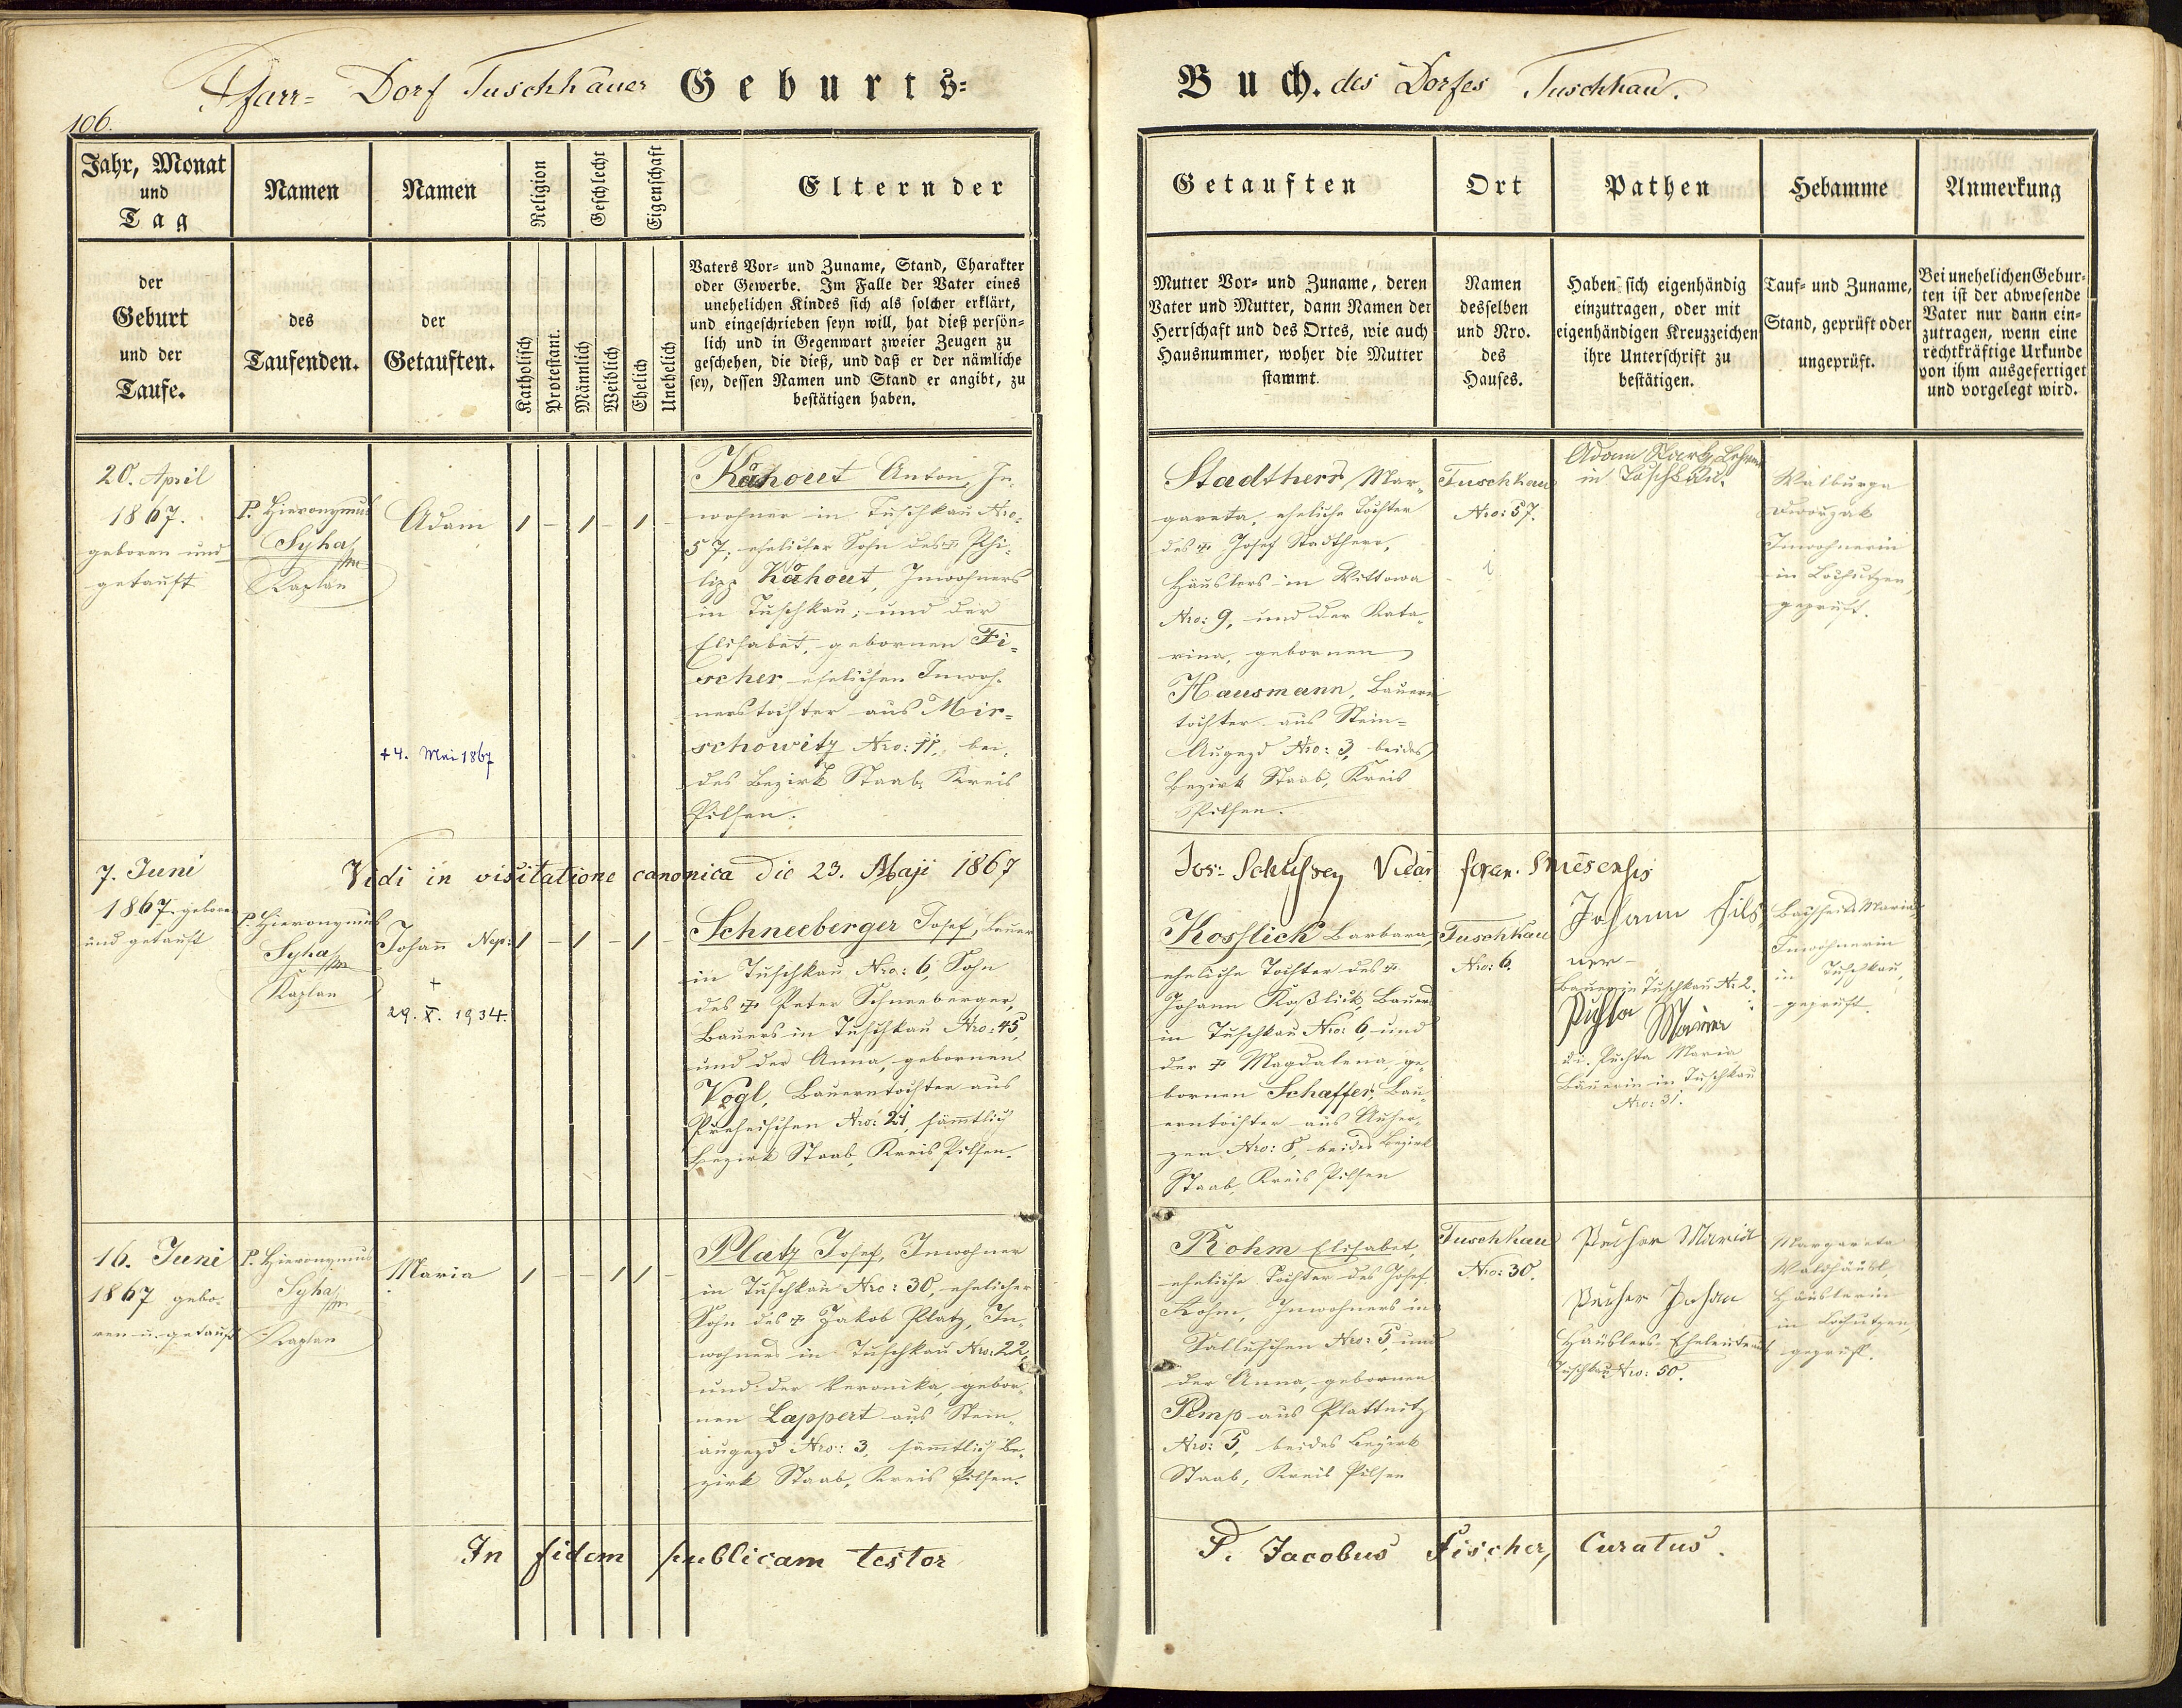 Pfarr= Dorf Tuschkauer Geburts=
106.
Jahr, Monat
und
Tag
der
Geburt
und der
Taufe.
Namen
des
Taufenden.
Namen
der
Getauften.
Religion
Katholisch
Protestant.
Geschlecht
Männlich
Weiblich
Eigenschaft
Ehelich
Unehelich
Eltern der
Vaters Vor= und Zuname, Stand, Charakter
oder Gewerbe. Im Falle der Vater eines
unehelichen Kindes sich als solcher erklärt,
und eingeschrieben seyn will, hat dieß persön=
lich und in Gegenwart zweier Zeugen zu
geschehen, die dieß, und daß er der nämliche
sey, dessen Namen und Stand er angibt, zu
bestätigen haben.
20. April
1867.
geboren und
getauft
P. Hieronymus
Syha
Kaplan
Adam
+4. Mai 1867
1 – 1 – 1 –
Kahout Anton, In=
wohner in Tuschkau Nro:
57, ehelicher Sohn des † Phi=
lipp Kahout, Inwohners
in Tuschkau; und der
Elisabet, gebornen Fi=
scher ehelichen Inwoh=
nerstochter aus Mir=
schowitz Nro: 11, bei=
des Bezirk Staab, Kreis
Pilsen.
Vidi in visitatione canonica die 23. Maji 1867
7. Juni
1867 geboren
und getauft
P. Hieronymus
Syha
Kaplan
Johann Nep:
+
29. X. 1934.
1 – 1 – 1 –
Schneeberger Josef, Bauer
in Tuschkau Nro: 6, Sohn
des † Peter Schneeberger,
Bauers in Tuschkau Nro: 45,
und der Anna, gebornen
Vogl, Bauerntochter aus
Nro: 21, sämmtlich
Bezirk Staab, Kreis Pilsen.
16. Juni
1867 gebo=
ren u. getauft
P. Hieronymus
Syha
Kaplan
Maria
1 – – 1 1 –
Platz Josef, Inwohner
in Tuschkau Nro: 30, ehelicher
Sohn des † Jakob Platz, In=
wohners in Tuschkau Nro: 22,
und der Veronika, gebor=
nen Lappert aus Stein=
augezd Nro: 3, sämmtlich Be=
zirk Staab, Kreis Pilsen.
In fidem publicam testor
Buch. des Dorfes Tuschkau.
Getauften
Mutter Vor= und Zuname, deren
Vater und Mutter, dann Namen der
Herrschaft und des Ortes, wie auch
Hausnummer, woher die Mutter
stammt.
Ort
Namen
desselben
und Nro.
des
Hauses.
Pathen
Haben sich eigenhändig
einzutragen, oder mit
eigenhändigen Kreuzzeichen
ihre Unterschrift zu
bestätigen.
Hebamme
Tauf= und Zuname,
Stand, geprüft oder
ungeprüft.
Anmerkung
Bei unehelichen Gebur=
ten ist der abwesende
Vater nur dann ein=
zutragen, wenn eine
rechtkräftige Urkunde
von ihm ausgefertiget
und vorgelegt wird.
Stadtherr, Mar=
gareta, eheliche Tochter
des † Josef Stadtherr,
Häuslers in Wittowa
Nro: 9, und der Kata=
rina, gebornen
Hausmann, Bauern
tochter aus Stein=
Augezd Nro: 3, beides
Bezirk Staab, Kreis
Pilsen.
Tuschkau
Nro: 57.
Adam
in Tuschkau.
Walburga
Dworzak
Inwohnerin
in Lochutzen,
geprüft.
Jos: Vicar foran.
Kosslick Barbara,
eheliche Tochter des †
Johann Koßlick, Bauers
in Tuschkau Nro: 6, und
der † Magdalena, ge=
bornen Schaffer, Bau=
erntochter aus Auher=
zen Nro: 8, beides Bezirk
Staab, Kreis Pilsen
Tuschkau
Nro: 6.
Johann Fils
ner
Bauer in Tuschkau N: 2.
Puchta Maria
d. i. Puchta Maria
Bäuerin in Tuschkau
Nro: 31.
Maria
Inwohnerin
in Tuschkau,
geprüft.
Rohm Elisabet,
eheliche Tochter des Josef
Rohm, Inwohners in
Salluschen Nro: 5, und
der Anna, gebornen
Pimp aus Plattnitz
Nro: 5, beides Bezirk
Staab, Kreis Pilsen
Tuschkau
Nro: 30.
Maria
Johan
Häuslers=Eheleute aus
Tuschkau Nro: 50.
Margareta
Waldhäusl,
Häuslerin
in Lochutzen,
geprüft.
P. Jacobus Fischer, Curatus.